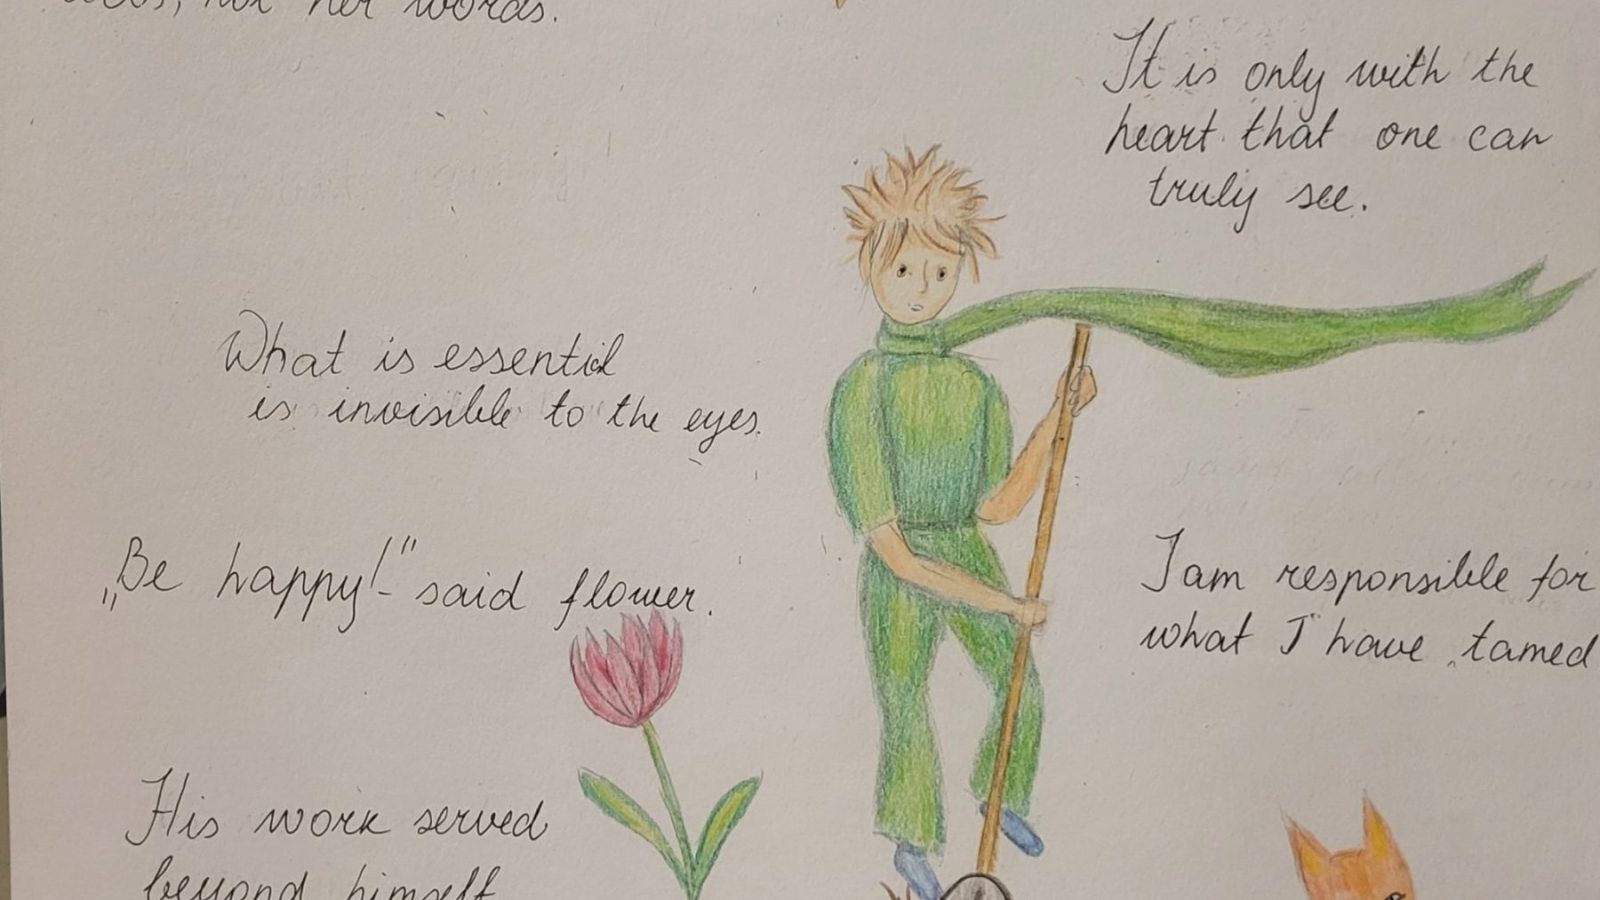 not her words.
It is only with the
heart that one can
truly see.
What is essential
is invisible to the eyes.
„Be happy!“ - said flower.
I am responsible for
what I have tamed
His work served
beyond himself